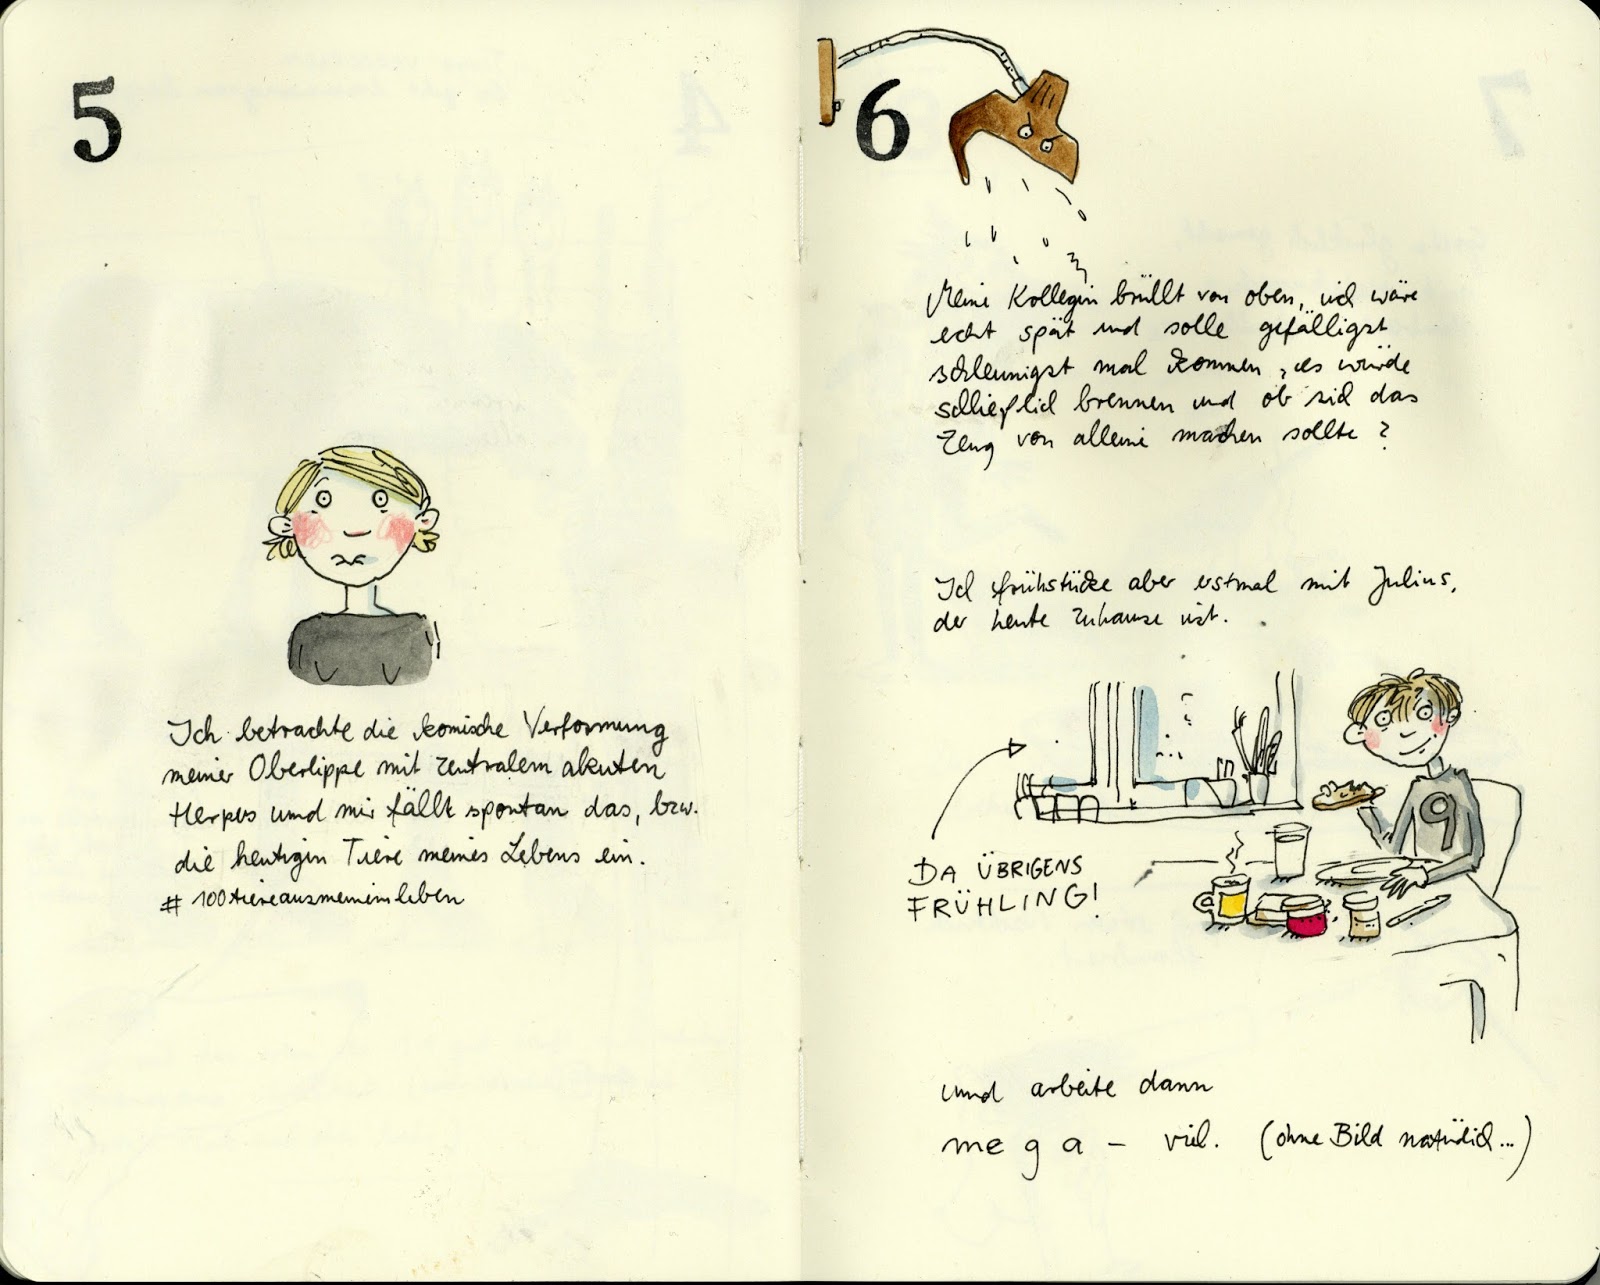 5
Ich betrachte die komische Verformung
meiner Oberlippe mit zentralem akuten
Herpes und mir fällt spontan das, bzw.
die heutigen Tiere meines Lebens ein.
# 100tiereausmeinemleben
6
Meine Kollegin brüllt von oben, ich wäre
echt spät und solle gefälligst
schleunigst mal kommen, es würde
schließlich brennen und ob sich das
Zeug von alleine machen sollte?
Ich frühstücke aber erstmal mit Julius,
der heute Zuhause ist.
DA ÜBRIGENS
FRÜHLING!
9
und arbeite dann
mega - viel. (ohne Bild natürlich...)